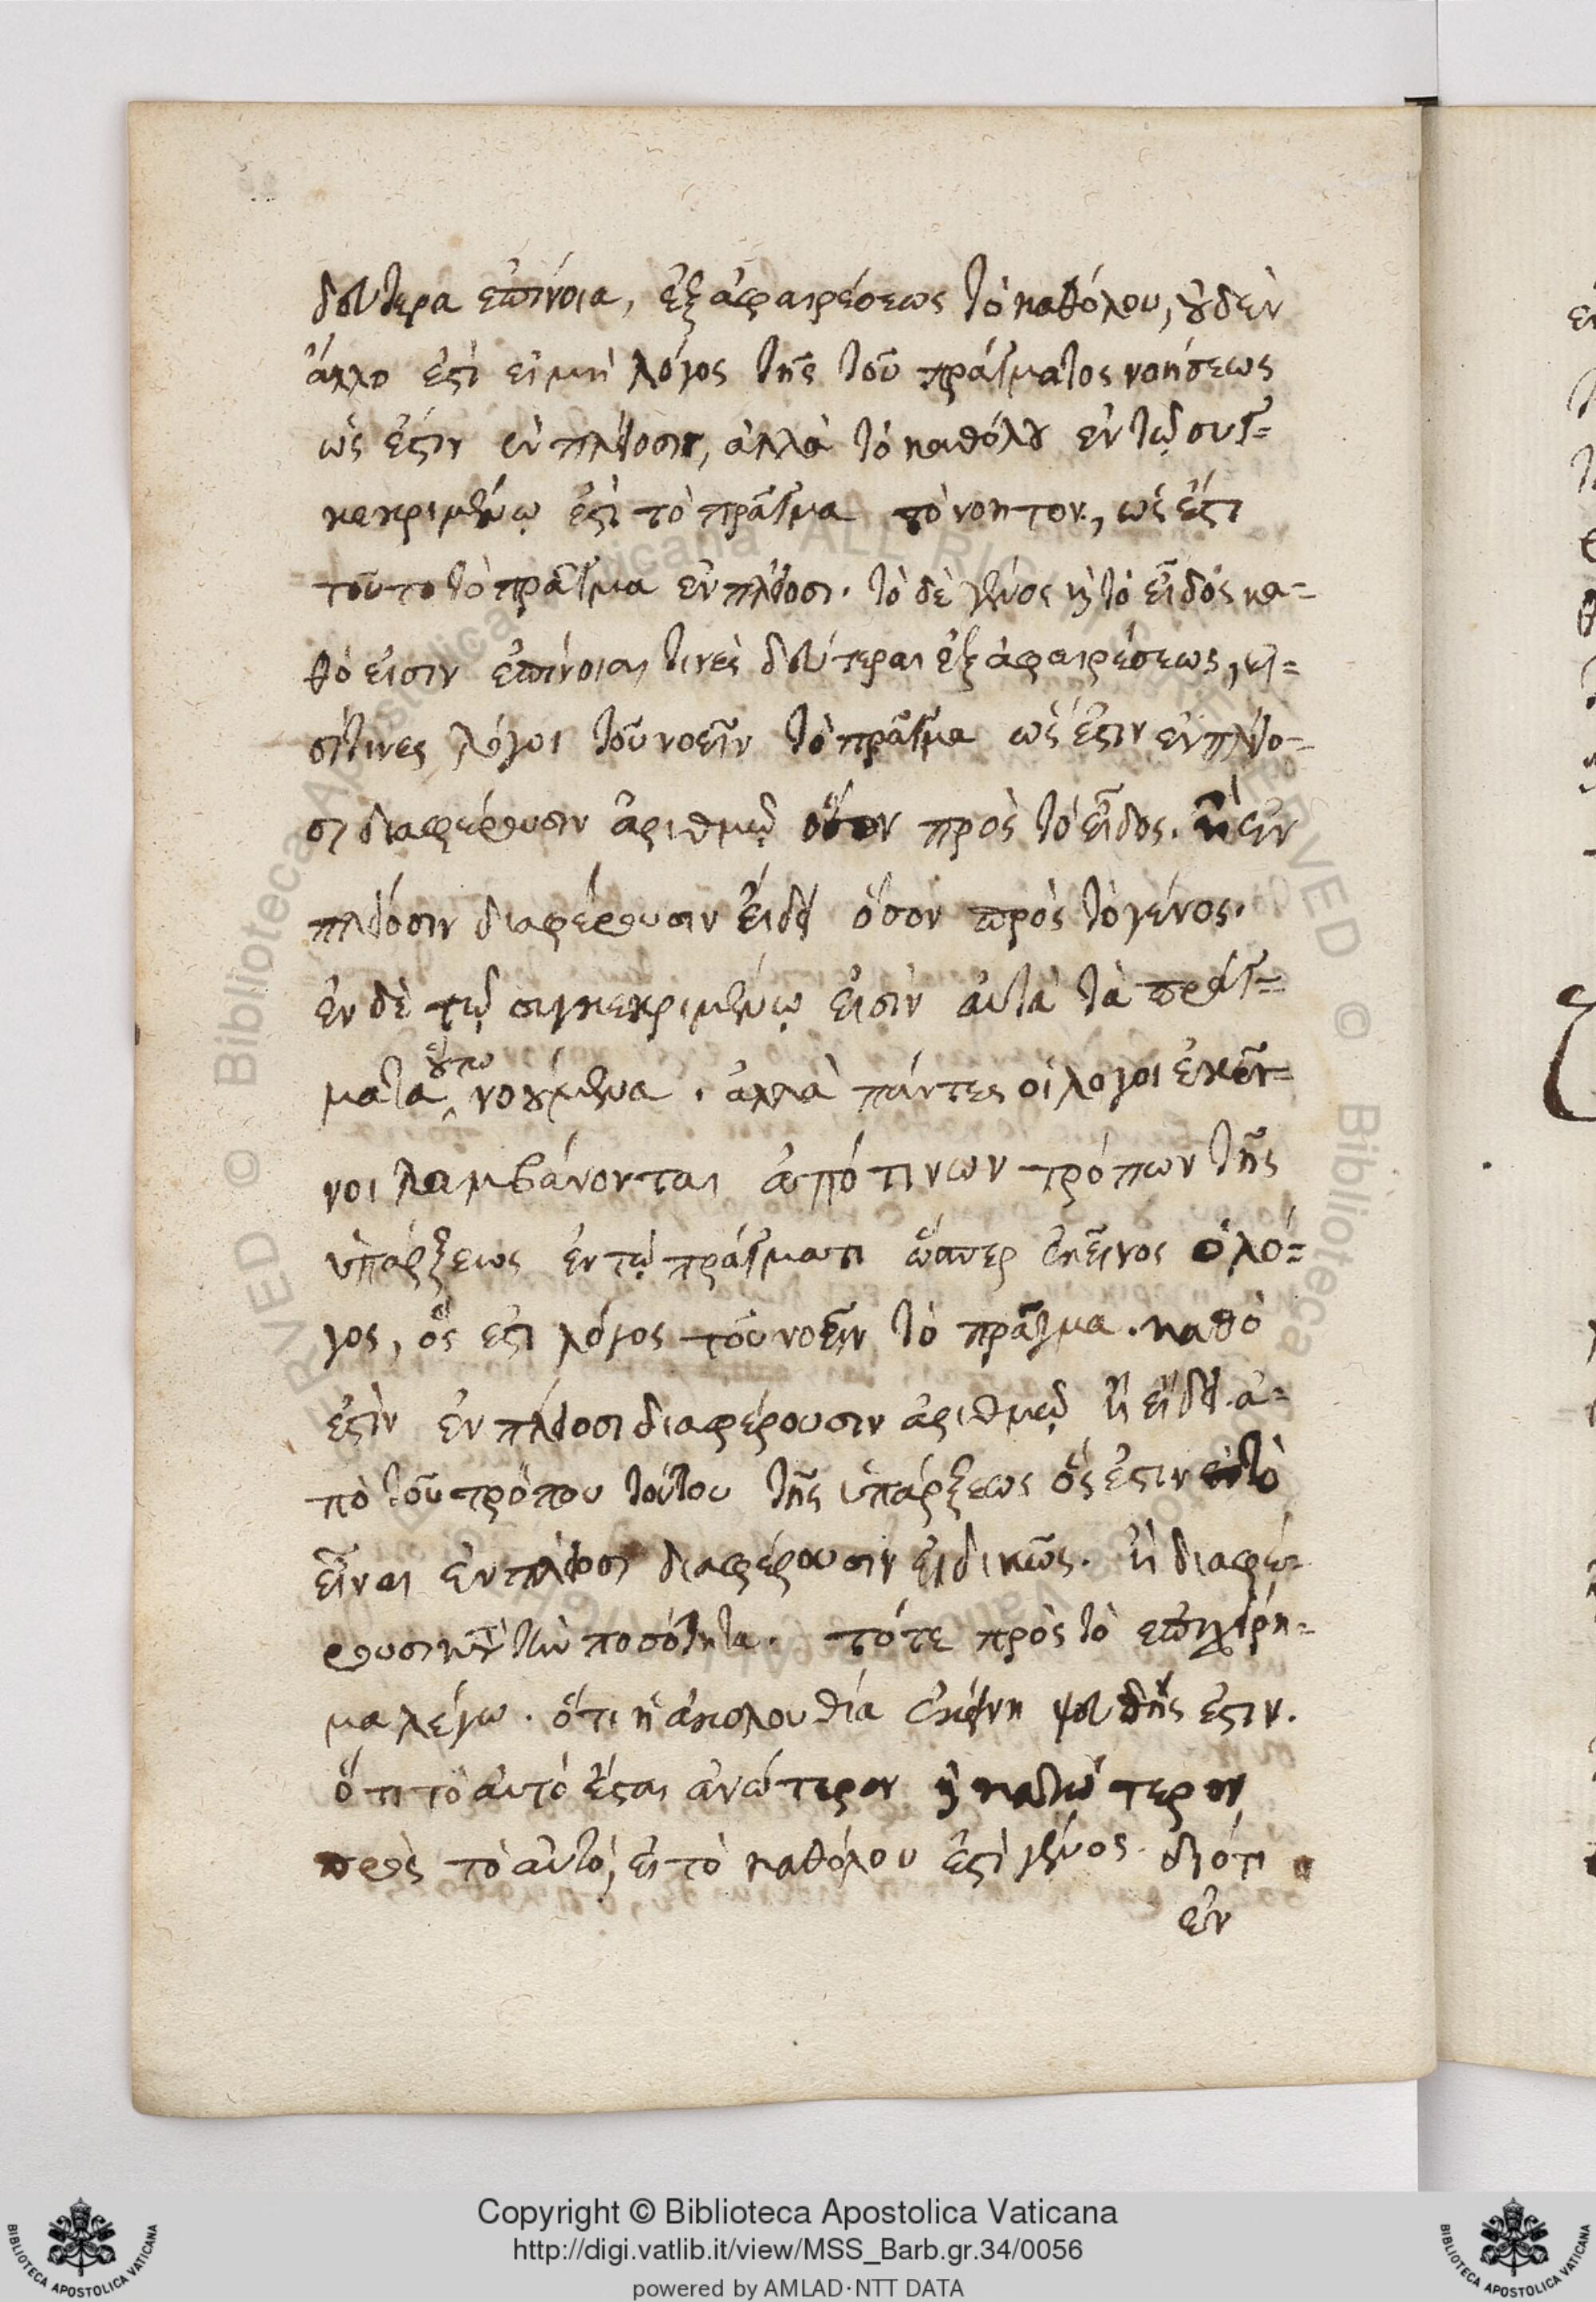 δευτερα ἐπίνοια, ἐξ ἀφαιρέσεως τὸ καθόλου, οὐδὲν
ἄλλο ἐστὶ εἰ μὴ λόγος τῆς τοῦ πράγματος νοήσεως
ὡς ἔστιν ἐν πλείοσιν, ἀλλὰ τὸ καθόλου ἐν τῷ συγ=
κεκριμένῳ ἐστὶ τὸ πρᾶγμα τὸ νοητον, ὡς ἔστι
τοῦτο τὸ πρᾶγμα ἐν πλείοσι. τὸ δὲ γένος ἢ τὸ εἶδος κα=
θό εἰσιν ἐπίνοιαι τινὲς δεύτεραι ἐξ ἀφαιρέσεως, εἰ=
σὶ τινες λόγοι τοῦ νοεῖν τὸ πρᾶγμα ὡς ἔστιν ἐν πλείο=
σι διαφέρουσιν ἀριθμῷ ὅσον πρὸς τὸ εἶδος. ἢ ἐν
πλείοσιν διαφέρουσιν εἴδει ὅσον πρὸς τὸ γένος.
ἐν δὲ τῷ συγκεκριμένῳ εἰσὶν αὐτὰ τὰ πράγ=
ματα οὕτω νοούμενα. ἀλλὰ πάντες οἱ λογοι ἐκεῖ=
νοι λαμβάνονται ἀπό τινων τρόπων τῆς
ὑπάρξεως ἐν τῷ πράγματι ὥσπερ ἐκεῖνος ὁ λό=
γος, ὅς ἐστι λόγος τοῦ νοεῖν τὸ πρᾶγμα. καθὸ
ἐστὶν ἐν πλείοσι διαφέρουσιν ἀριθμῷ ἢ εἴδει. ἀ=
πὸ τοῦ τρόπου τούτου τῆς ὑπάρξεως ὅς ἐστιν τὸ
εἶναι ἐν πλείοσι διαφέρουσιν εἰδικῶς. ἢ διαφέ=
ρουσι κατὰ τὴν ποσότητα. τότε πρὸς τὸ ἐπιχείρη=
μα λέγω. ὅτι ἡ ἀκολουθία ἐκείνη ψευδής ἐστιν.
ὅτι τὸ αὐτὸ ἔσται ἀνώτερον ἢ κατώτερον
πρὸς τὸ αὐτό, εἰ τὸ καθόλου ἐστὶ γένος. διότι
ἐν
Copyright © Biblioteca Apostolica Vaticana
http://digi.vatlib.it/view/MSS_Barb.gr.34/0056
powered by AMLAD·NTT DATA